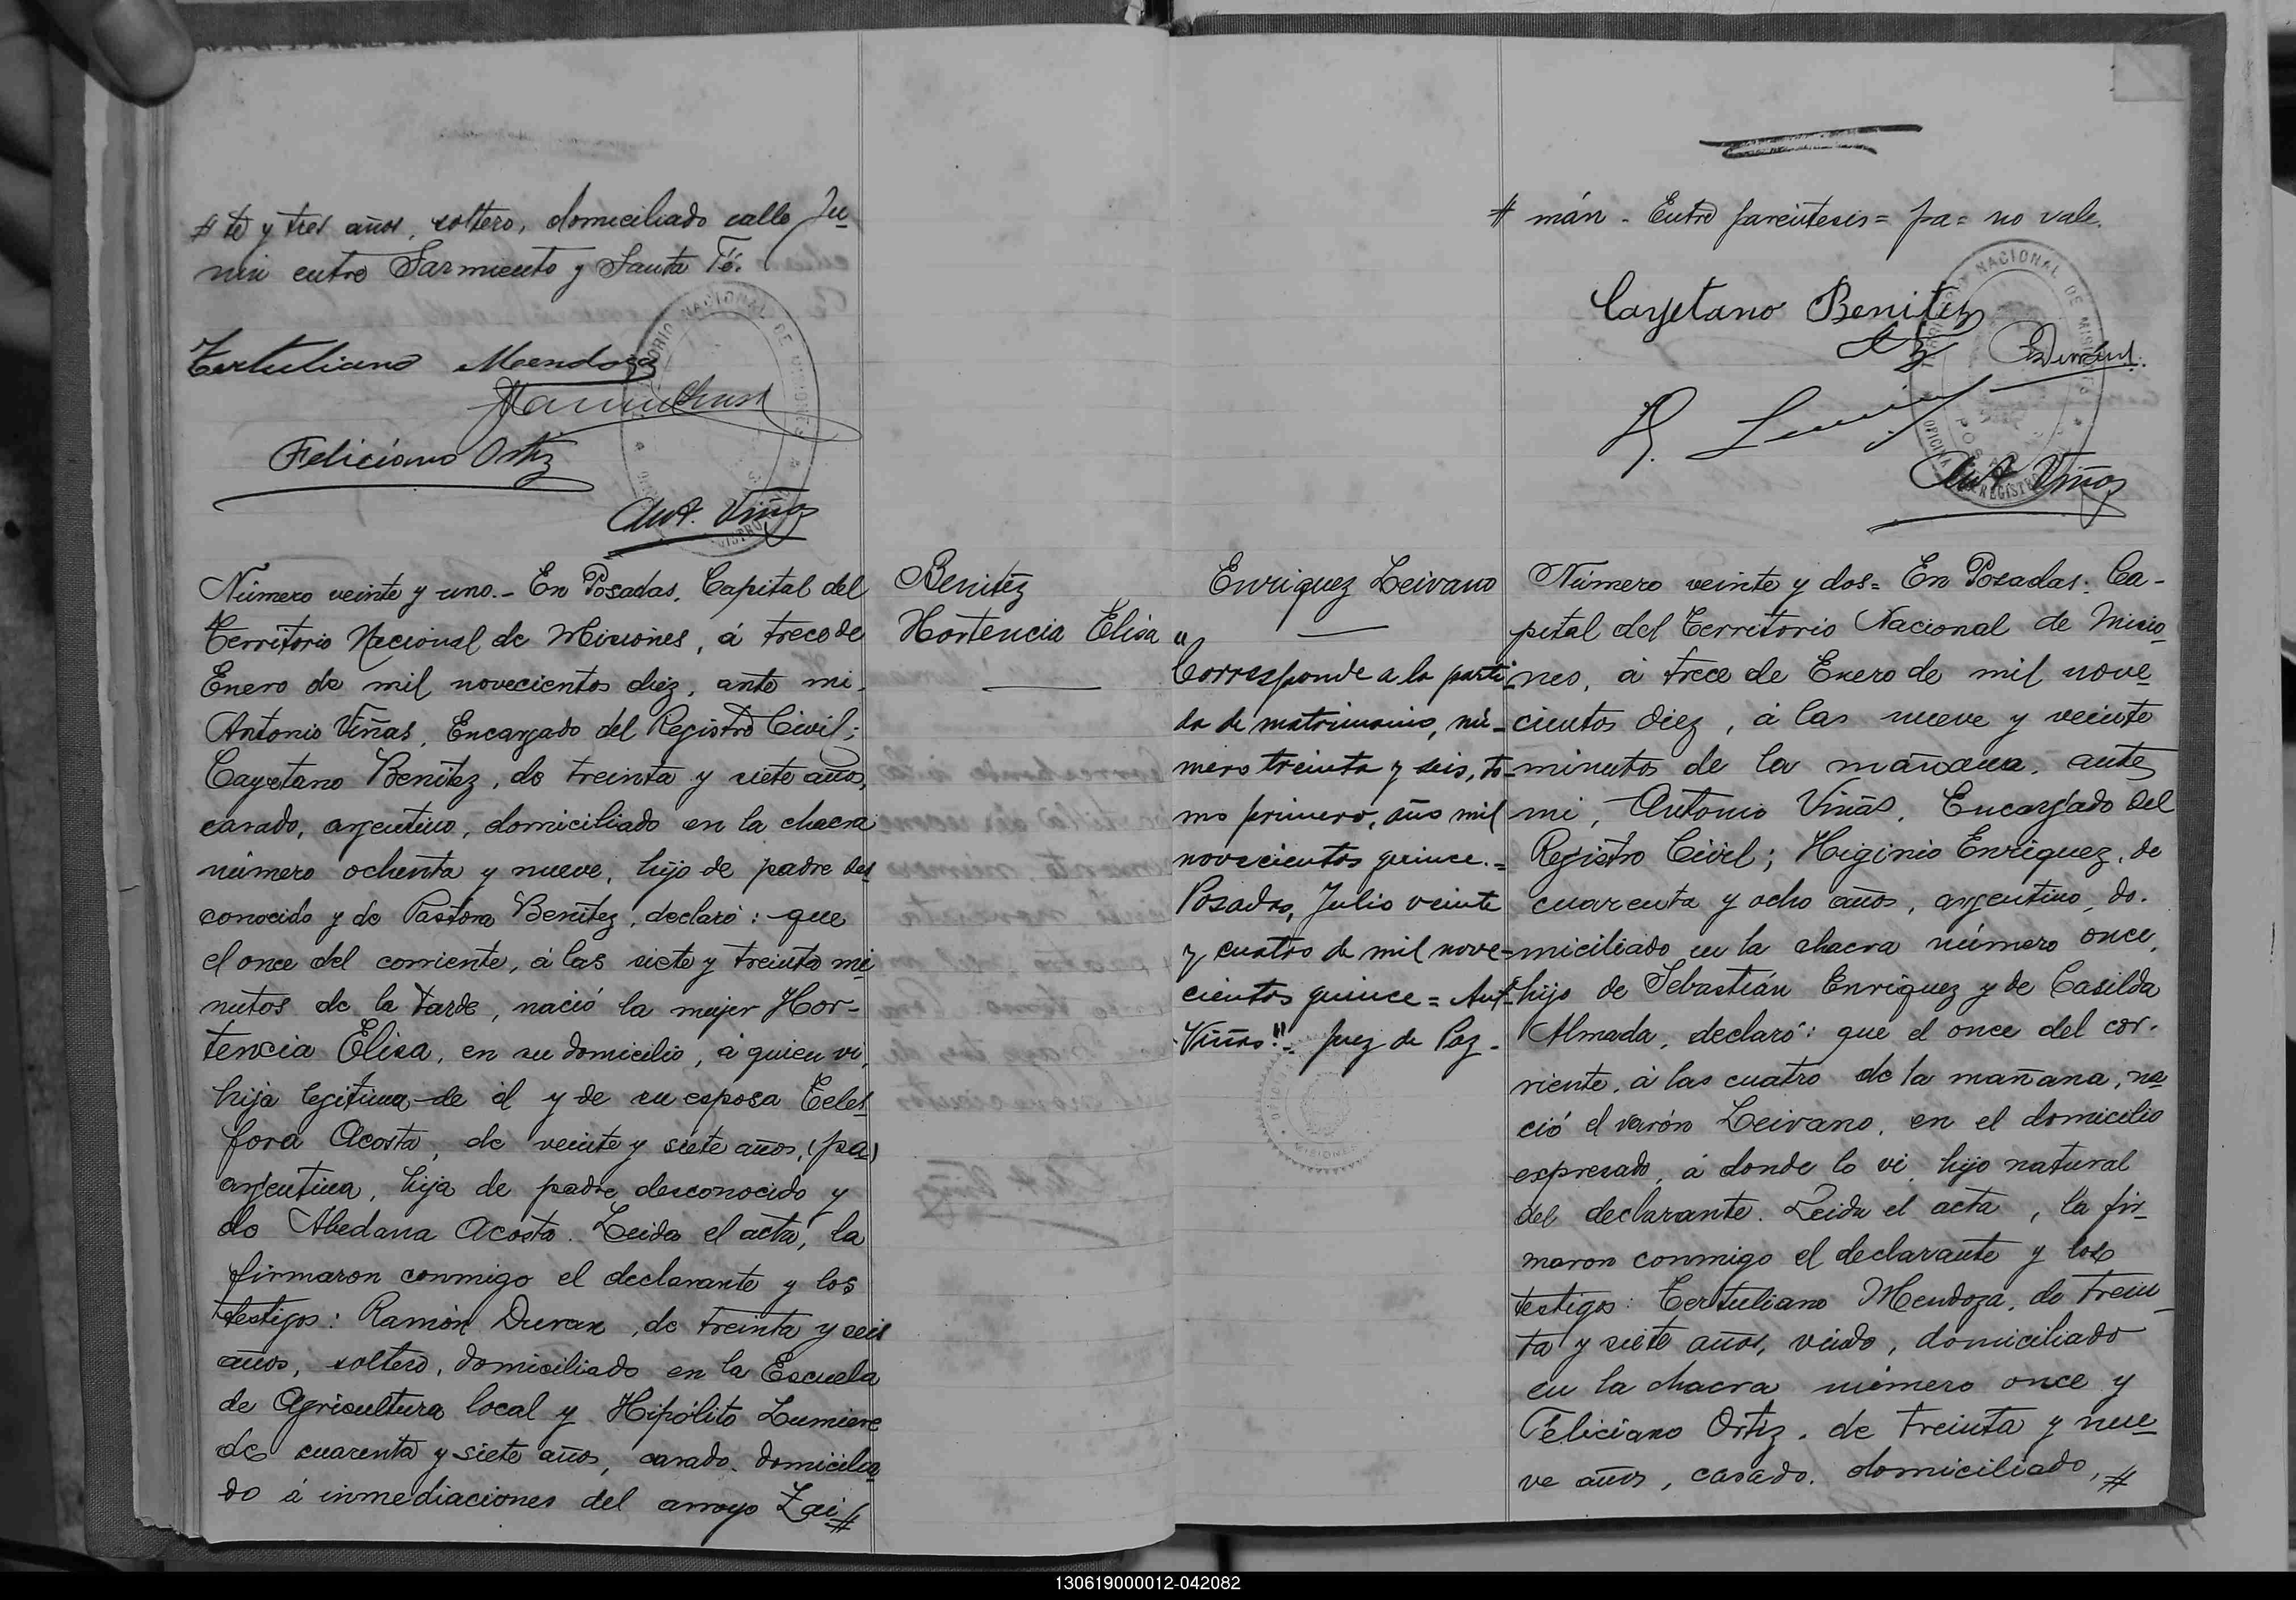 # te y tres años, soltero, domiciliado calle Ju
nin entre Sarmiento y Santa Fé.
Tertuliano Mendoza
Feliciano Ortiz
Ant. Viñas
Número veinte y uno.- En Posadas, Capital del
Territorio Nacional de Misiones, á trece de
Enero de mil novecientos diez, ante mi,
Antonio Viñas, Encargado del Registro Civil;
Cayetano Benitez, de treinta y siete años,
casado, argentino, domiciliado en la chacra
número ochenta y nueve, hijo de padre des
conocido y de Pastora Benitez, declaró: que
el once del corriente, á las siete y treinta mi
nutos de la tarde, nació la mujer Hor-
tencia Elisa, en su domicilio, á quien vi,
hija legitima de él y de su esposa Teles
fora Acosta, de veinte y siete años, (pa)
argentina, hija de padre desconocido y
de Abedana Acosta. Leida el acta, la
firmaron conmigo el declarante y los
testigos: Ramón Duran, de treinta y seis
años, soltero, domiciliado en la Escuela
de Agricultura local y Hipólito Lumiere
de cuarenta y siete años, casado, domicilia
do á inmediaciones del arroyo Zai #
Benitez
Hortencia Elisa
# mán - Entre paréntesis = pa = no vale.
Cayetano Benitez
Ant Viñas
TERRITORIO NACIONAL DE MISIONES
POSADAS
Enriquez Leivano
"Corresponde a la parti
da de matrimonio, nú-
mero treinta y seis, to-
mo primero, año mil
novecientos quince.=
Posadas, Julio veinte
y cuatro de mil nove-
cientos quince = Ant
Viñas"- Juez de Paz -
MISIONES
Número veinte y dos= En Posadas, Ca-
pital del Territorio Nacional de Misio
nes, á trece de Enero de mil nove
cientos diez, á las nueve y veinte
minutos de la mañana, ante
mi, Antonio Viñas, Encargado del
Registro Civil; Higinio Enriquez, de
cuarenta y ocho años, argentino, do-
miciliado en la chacra número once,
hijo de Sebastián Enriquez y de Casilda
Almada, declaró: que el once del cor-
riente, á las cuatro de la mañana, na
ció el varón Leivano, en el domicilio
expresado, á donde lo vi, hijo natural
del declarante. Leida el acta, la fir-
maron conmigo el declarante y los
testigos: Tertuliano Mendoza, de trein-
ta y siete años, viudo, domiciliado
en la chacra número once y
Feliciano Ortiz, de treinta y nue
ve años, casado, domiciliado, #
130619000012-042082